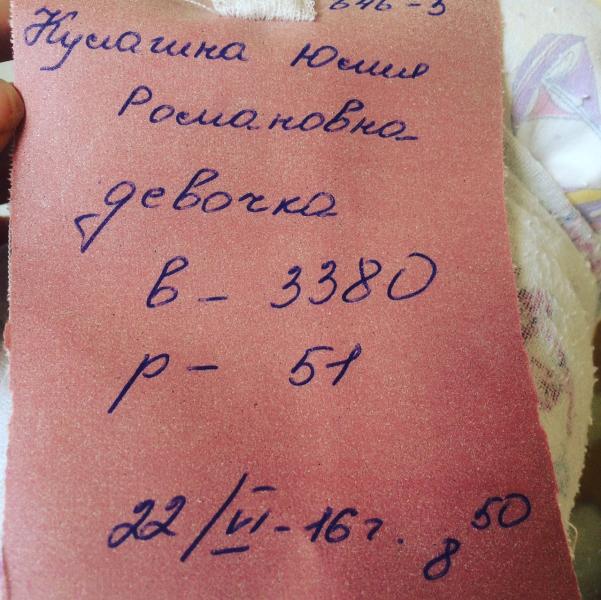 Кулагина Юлия
Романовна
девочка
в - 3380
р - 51
22/VI-16г. 8 50